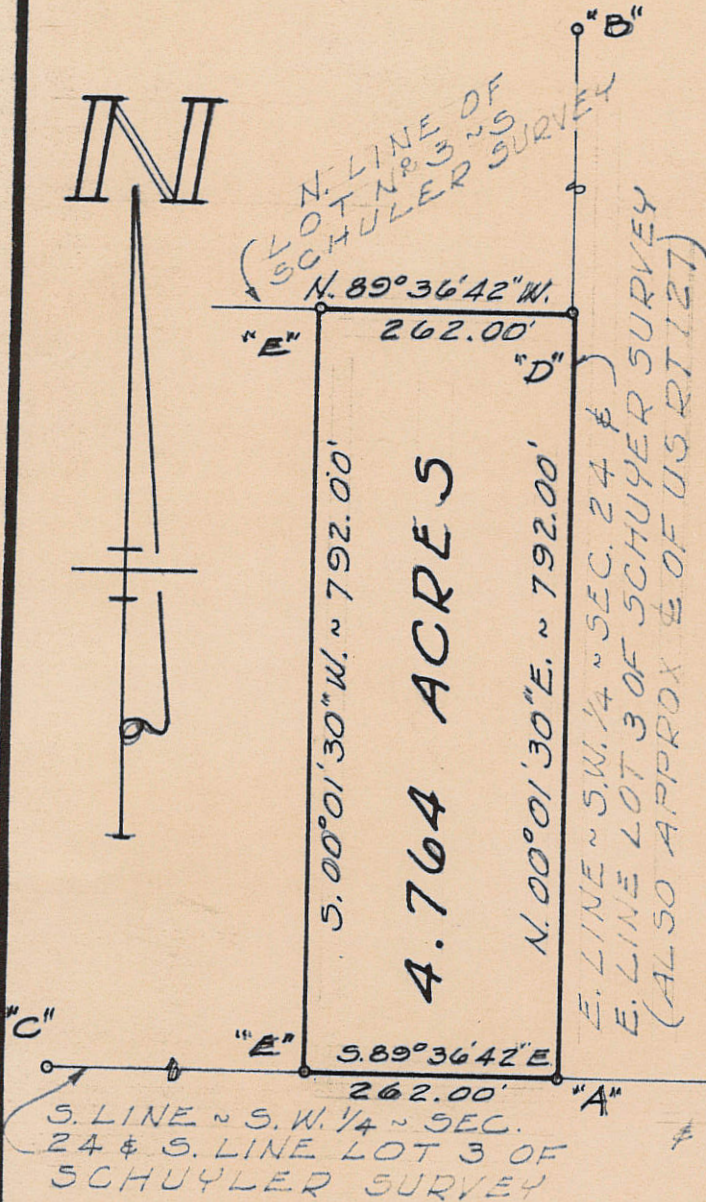 "B"
N
N. LINE OF
LOT Nº 3 ~ S
SCHULER SURVEY
N. 89°36'42" W.
262.00'
"E"
"D"
S. 00°01'30" W. ~ 792.00'
4.764 ACRES
N. 00°01'30" E. ~ 792.00'
E. LINE ~ S.W. 1/4 ~ SEC. 24 &
E. LINE LOT 3 OF SCHUYER SURVEY
(ALSO APPROX ℄ OF US RT 127)
"C"
"E"
S. 89°36'42" E
262.00'
"A"
S. LINE ~ S.W. 1/4 ~ SEC.
24 & S. LINE LOT 3 OF
SCHUYLER SURVEY